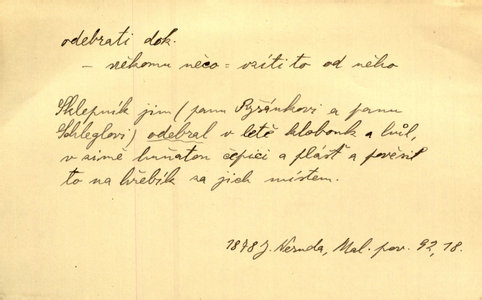 odebrati dok.
– někomu něco = vzíti to od něho
Sklepník jim (panu Ryšánkovi a panu
Schleglovi) odebral v létě klobouk a hůl,
v zimě huňatou čepici a plášť a pověsil
to na hřebík za jich místem.
1878 J. Neruda, Mal. pov. 92, 18.